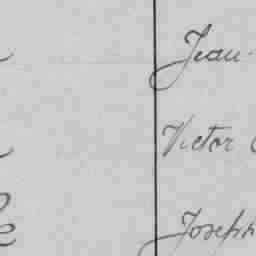 Jean-
Victor
Joseph